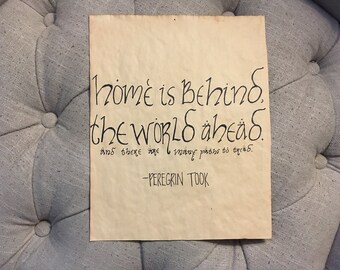 Home is Behind,
the World ahead.
and there are many paths to tread.
-PEREGRIN TOOK